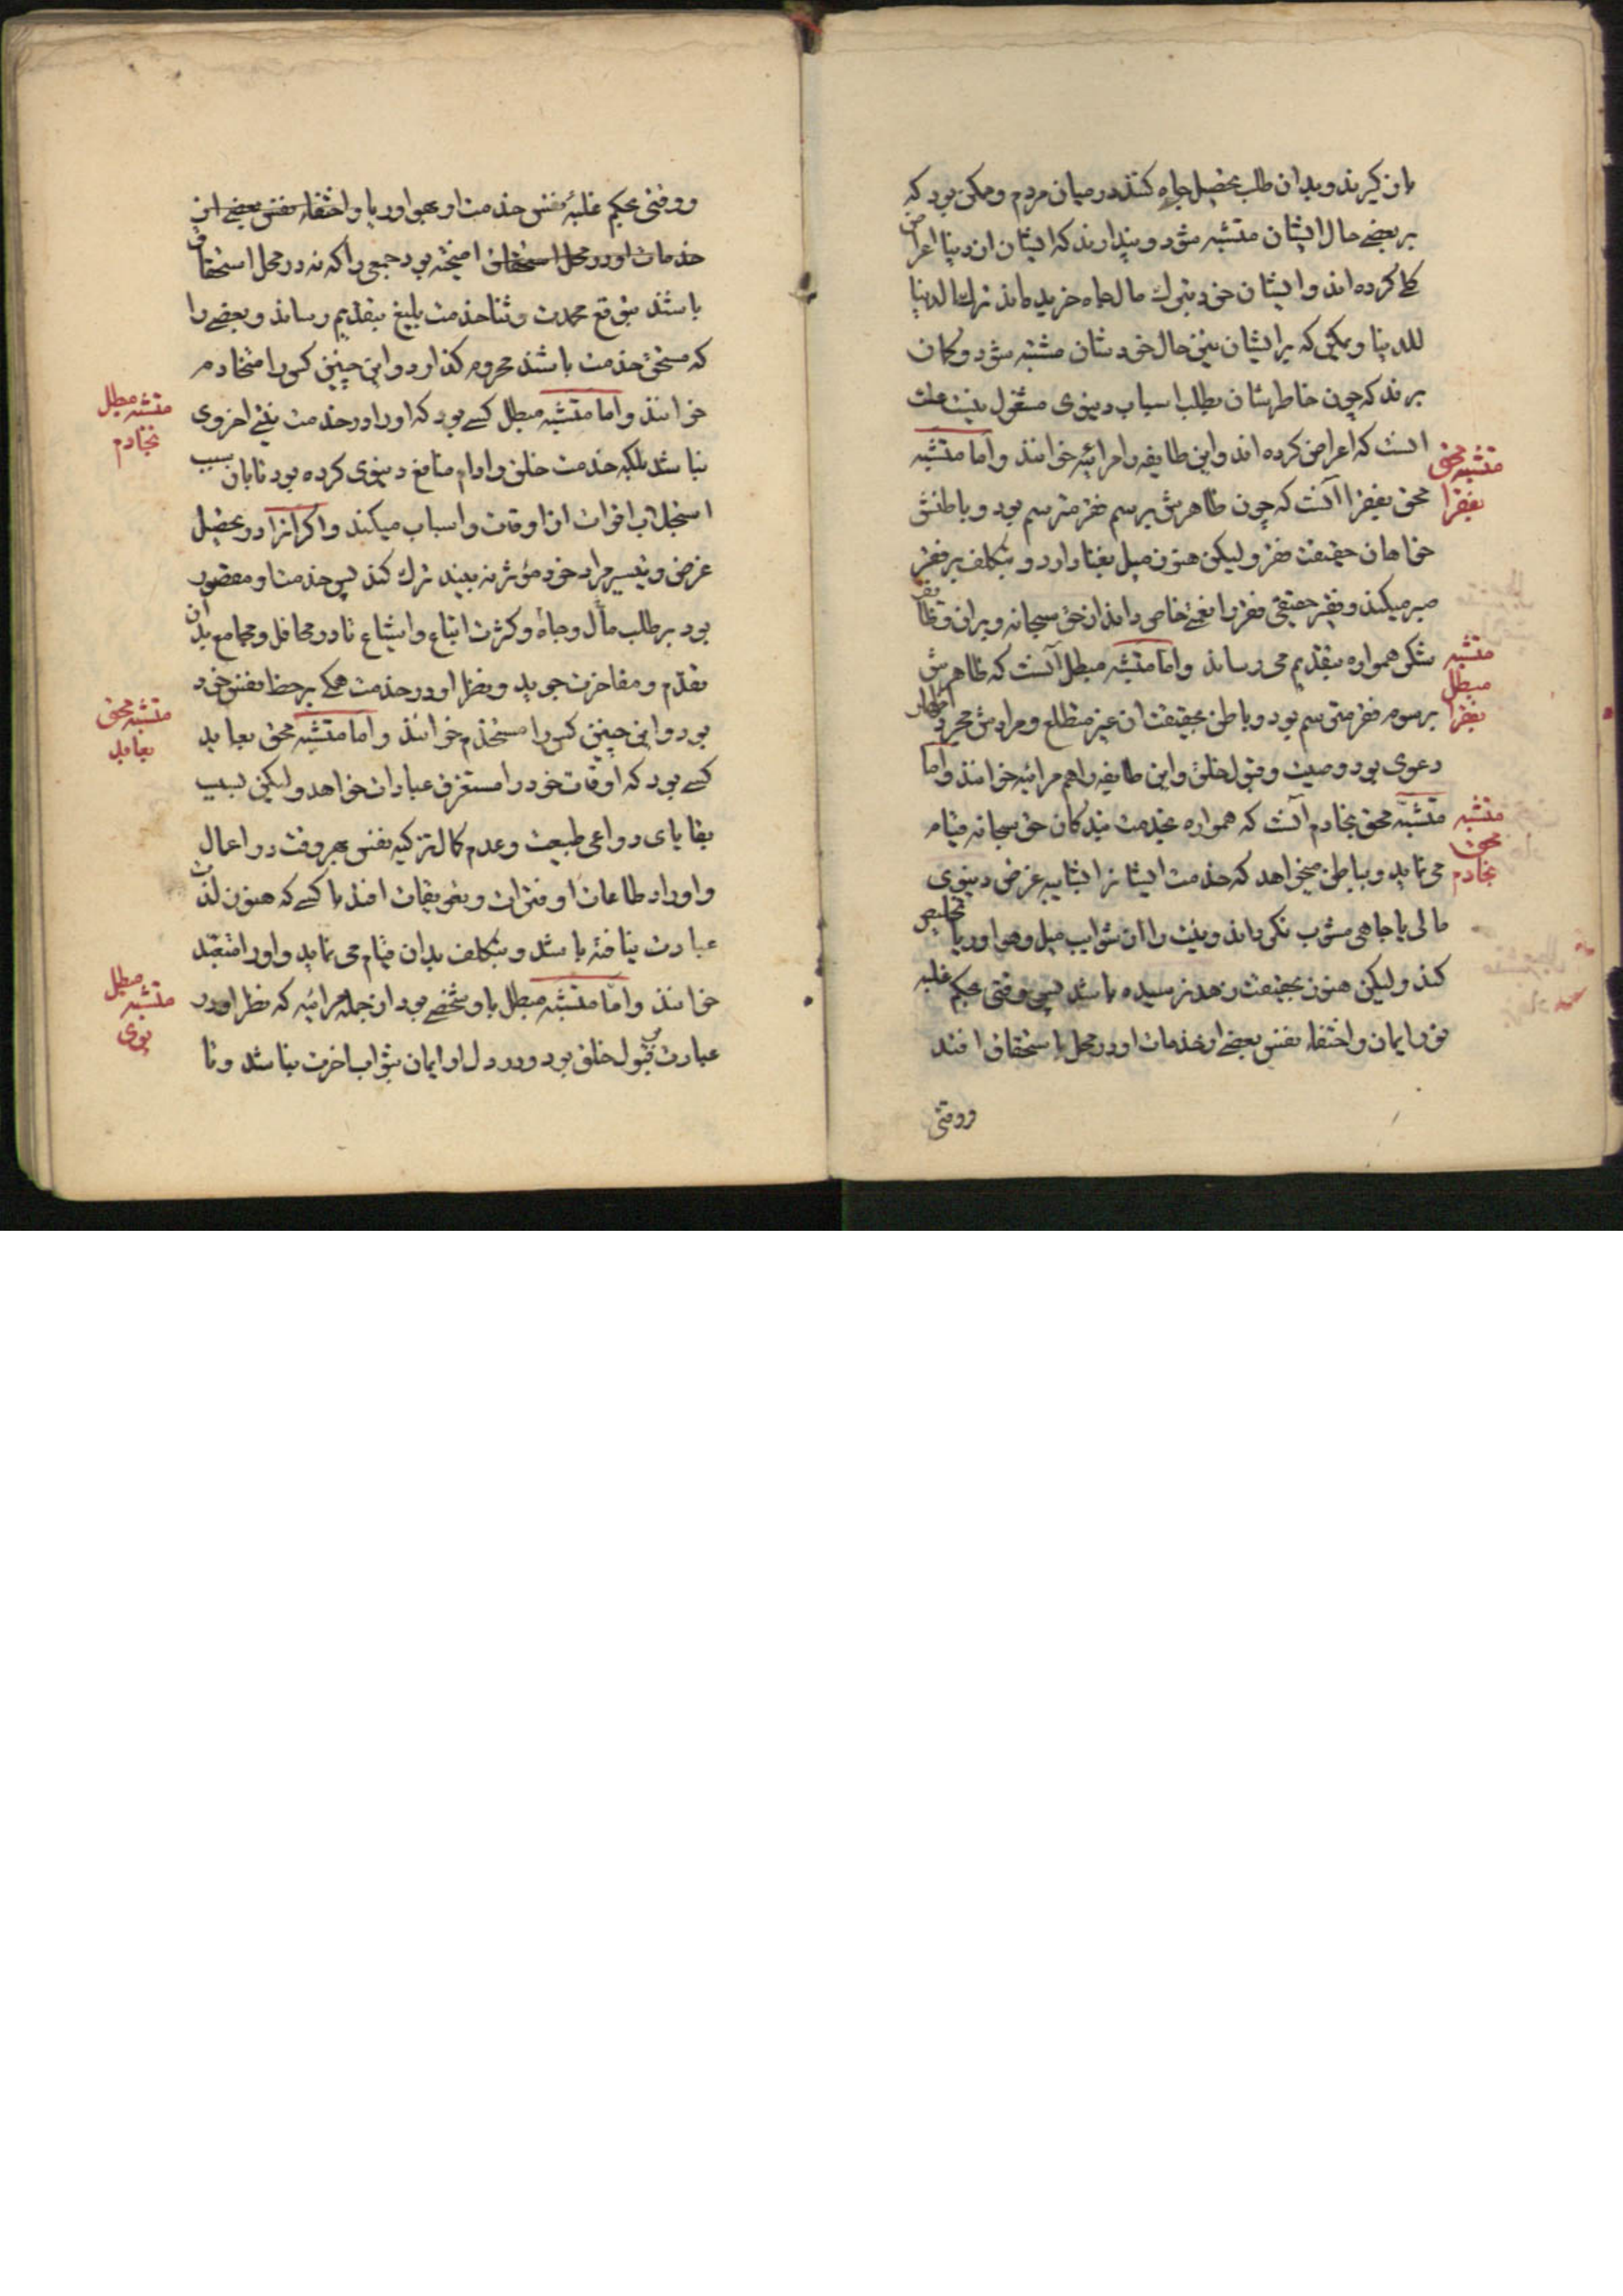 باز گیرند و بدان طلب تحصیل جاه کنند در میان مردم و ممکن بود که
بر بعضی حال ایشان متشبه شود و پندارند که ایشان از دنیا اعراض
کلی کرده‌اند و ایشان خود بترک مال جاه خریده‌اند ترک الدنیا
للدنیا و یمکن که بر ایشان نیز حال خودشان مشتبه شود و کمان
برند که چون خاطرشان بطلب اسباب دینوی مشغول نیست علت
انست که اعراض کرده‌اند و این طایفه را مرائیه خوانند و اما متشبه
محق بفقرا آنست که چون ظاهرش برسم فقر مترسم بود و باطنش
خواهان حقیقت فقر و لیکن هنوز میل بغنا دارد و بتکلف بر فقر
صبر میکند و فقیر حقیقی فقر را نعمتی خاص داند از حق سبحانه و بران وظایف
شکر همواره بتقدیم می رساند و اما متشبه مبطل آنست که ظاهرش
برسوم فقر مترسم بود و باطن بحقیقت ان غیر متطلع و مرادش مجرد اظهار
دعوی بود و صیت و قبول خلق و این طایفه را هم مرائیه خوانند و اما
متشبه محق بخادم آنست که همواره بخدمت بندکان حق سبحانه قیام
می نماید و بباطن میخواهد که خدمت ایشانرا بشایبه غرض دنیوی
مالی یا جاهی مشوب نکرداند و نیت را از شوایب میل و هوا و ریا تخلیص
کند و لیکن هنوز بحقیقت زهد نرسیده باشد پس وقتی بحکم غلبه
نور ایمان و اختفاء نفس بعضی از خدمات او در محل استحقاق افتد
ووقتی
متشبه محق
بفقرا
متشبه
مبطل
بفقرا
متشبه
محق
بخادم
ووقتی بحکم غلبهٔ نفس خدمت او بهوا و ریا و اختفاء نفس بعضی از
خدمات او در محل استحقاق امیخته بود جمعی را که نه در محل استحقاق
باشند بتوقع محمدت و ثنا خدمت بلیغ بتقدیم رساند و بعضی را
که مستحق خدمت باشند محروم کذارد و این چنین کس را متخادم
خوانند و اما متشبه مبطل کسی بود که او را در خدمت نیتی اخروی
نباشد بلکه خدمت خلق را دام منافع دینوی کرده بود تا بدان سبب
استجلاب اقوات از اوقات و اسباب میکند و اکر انرا در تحصیل
غرض و تیسیر مراد خود مؤثر نه بیند ترک کند پس خدمت او مقصور
بود بر طلب مال و جاه و کثرت اتباع و اشیاع تا در محافل و مجامع بدان
تقدم و مفاخرت جوید و نظر او در خدمت همکی بر حظ نفس خود
بود و این چنین کس را مستخدم خوانند و اما متشبه محق بعابد
کسی بود که اوقات خود را مستغرق عبادات خواهد و لیکن بسبب
بقایای دواعی طبیعت و عدم کمال تزکیه نفس بهر وقت در اعمال
و اوراد طاعات او فترات و تعویقات افتد یا کسی که هنوز لذت
عبادت نیافته باشد و بتکلف بدان قیام می نماید و او را متعبد
خوانند و اما متشبه مبطل باو شخصی بود از جمله مرائیه که نظر او در
عبادت بر قبول خلق بود و در دل او ایمان بثواب اخرت نباشد و تا
متشبه مبطل
بخادم
متشبه محق
بعابد
مبطل
متشبه
بوی